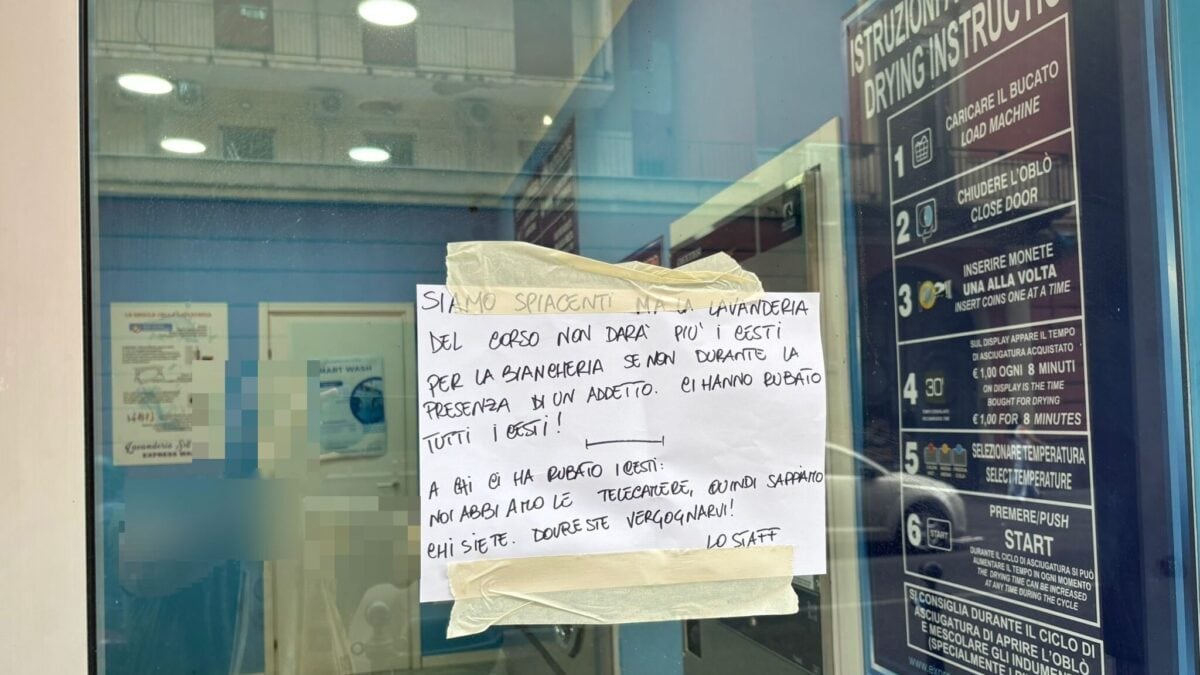 SIAMO SPIACENTI MA LA LAVANDERIA
DEL CORSO NON DARA' PIU' I CESTI
PER LA BIANCHERIA SE NON DURANTE LA
PRESENZA DI UN ADDETTO. CI HANNO RUBATO
TUTTI I CESTI!
A CHI CI HA RUBATO I CESTI:
NOI ABBIAMO LE TELECAMERE, QUINDI SAPPIAMO
CHI SIETE. DOVRESTE VERGOGNARVI!
LO STAFF
ISTRUZIONI
DRYING INSTRUCTIO
1
CARICARE IL BUCATO
LOAD MACHINE
2
CHIUDERE L'OBLÒ
CLOSE DOOR
3
INSERIRE MONETE
UNA ALLA VOLTA
INSERT COINS ONE AT A TIME
4
30'
SUL DISPLAY APPARE IL TEMPO
DI ASCIUGATURA ACQUISTATO
€ 1,00 OGNI 8 MINUTI
ON DISPLAY IS THE TIME
BOUGHT FOR DRYING
€ 1,00 FOR 8 MINUTES
5
SELEZIONARE TEMPERATURA
SELECT TEMPERATURE
6
START
PREMERE/PUSH
START
DURANTE IL CICLO DI ASCIUGATURA SI PUÒ
AUMENTARE IL TEMPO IN OGNI MOMENTO
THE DRYING TIME CAN BE INCREASED
AT ANY TIME DURING THE CYCLE
SI CONSIGLIA DURANTE IL CICLO DI
ASCIUGATURA DI APRIRE L'OBLÒ
E MESCOLARE GLI INDUMENTI
(SPECIALMENTE I
www.expre
MART WASH
Lavanderia Self
EXPRESS WA